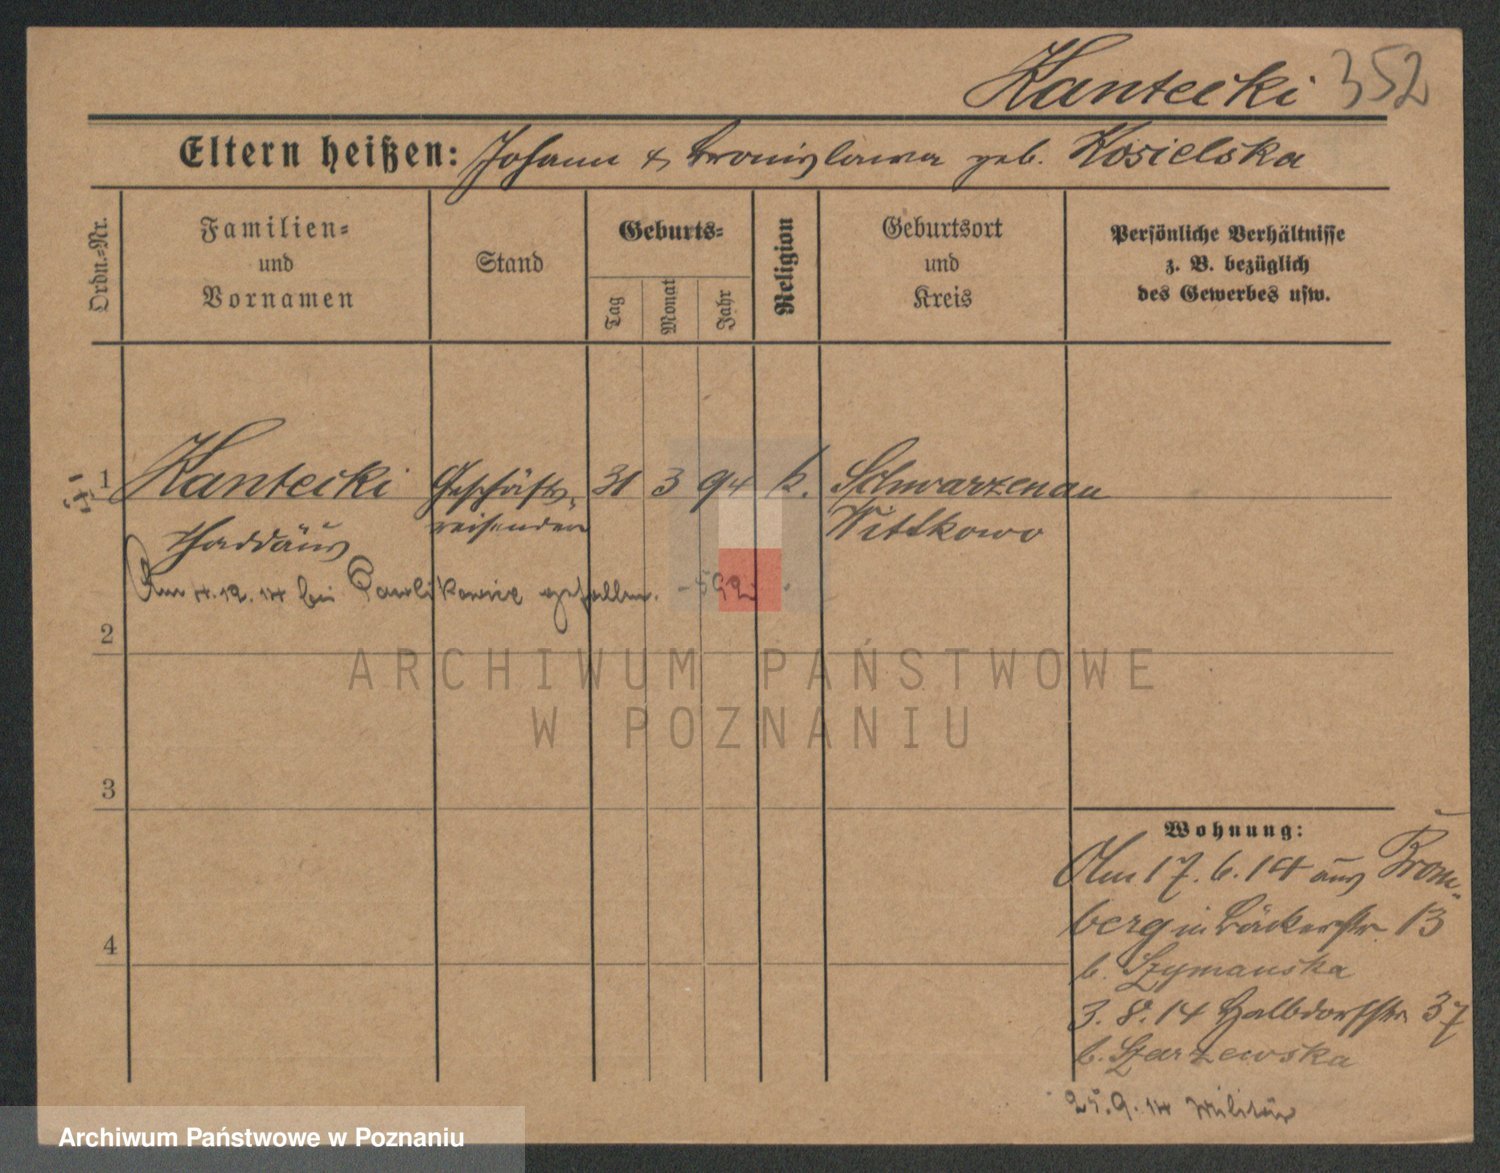 Kantecki 352
Eltern heißen: Johann & Bronislawa geb. Kosielska
Ordn.-Nr.
Familien- und Vornamen
Stand
Geburts-
Tag
Monat
Jahr
Religion
Geburtsort und Kreis
Persönliche Verhältnisse
z. B. bezüglich
des Gewerbes usw.
1 Kantecki Geschäfts- 31 3 94 k. Schwarzenau
Thaddäus reisender Wittkowo
Am 4.12.14 bei Pawlikowice gefallen.
2
ARCHIWUM PAŃSTWOWE
W POZNANIU
3
Wohnung:
Am 17.6.14 aus Brom-
berg in Bäckerstr. 13
b. Szymanska
4
3.8.14 Halbdorfstr. 37
b. Szarzewska
25.9.14 Militär
Archiwum Państwowe w Poznaniu